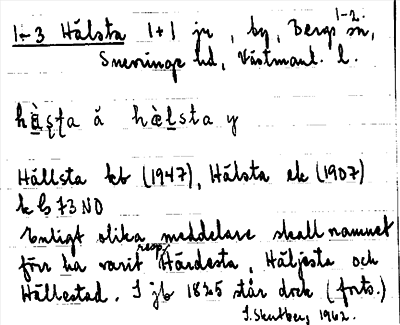 1-3 Hälsta 1+1 jr, by, Bergs sn, 1-2.
Snevringe hd, Västmanl. l.
hà̱ʂʈa ä hæ̀ḻsta y
Hällsta kb (1947), Hälsta ek (1907)
k G 73 NO
Enligt olika meddelare skall namnet
förr ha varit resp. Härdesta, Häljesta och
Hällestad. I jb 1825 står dock (forts.)
1962.